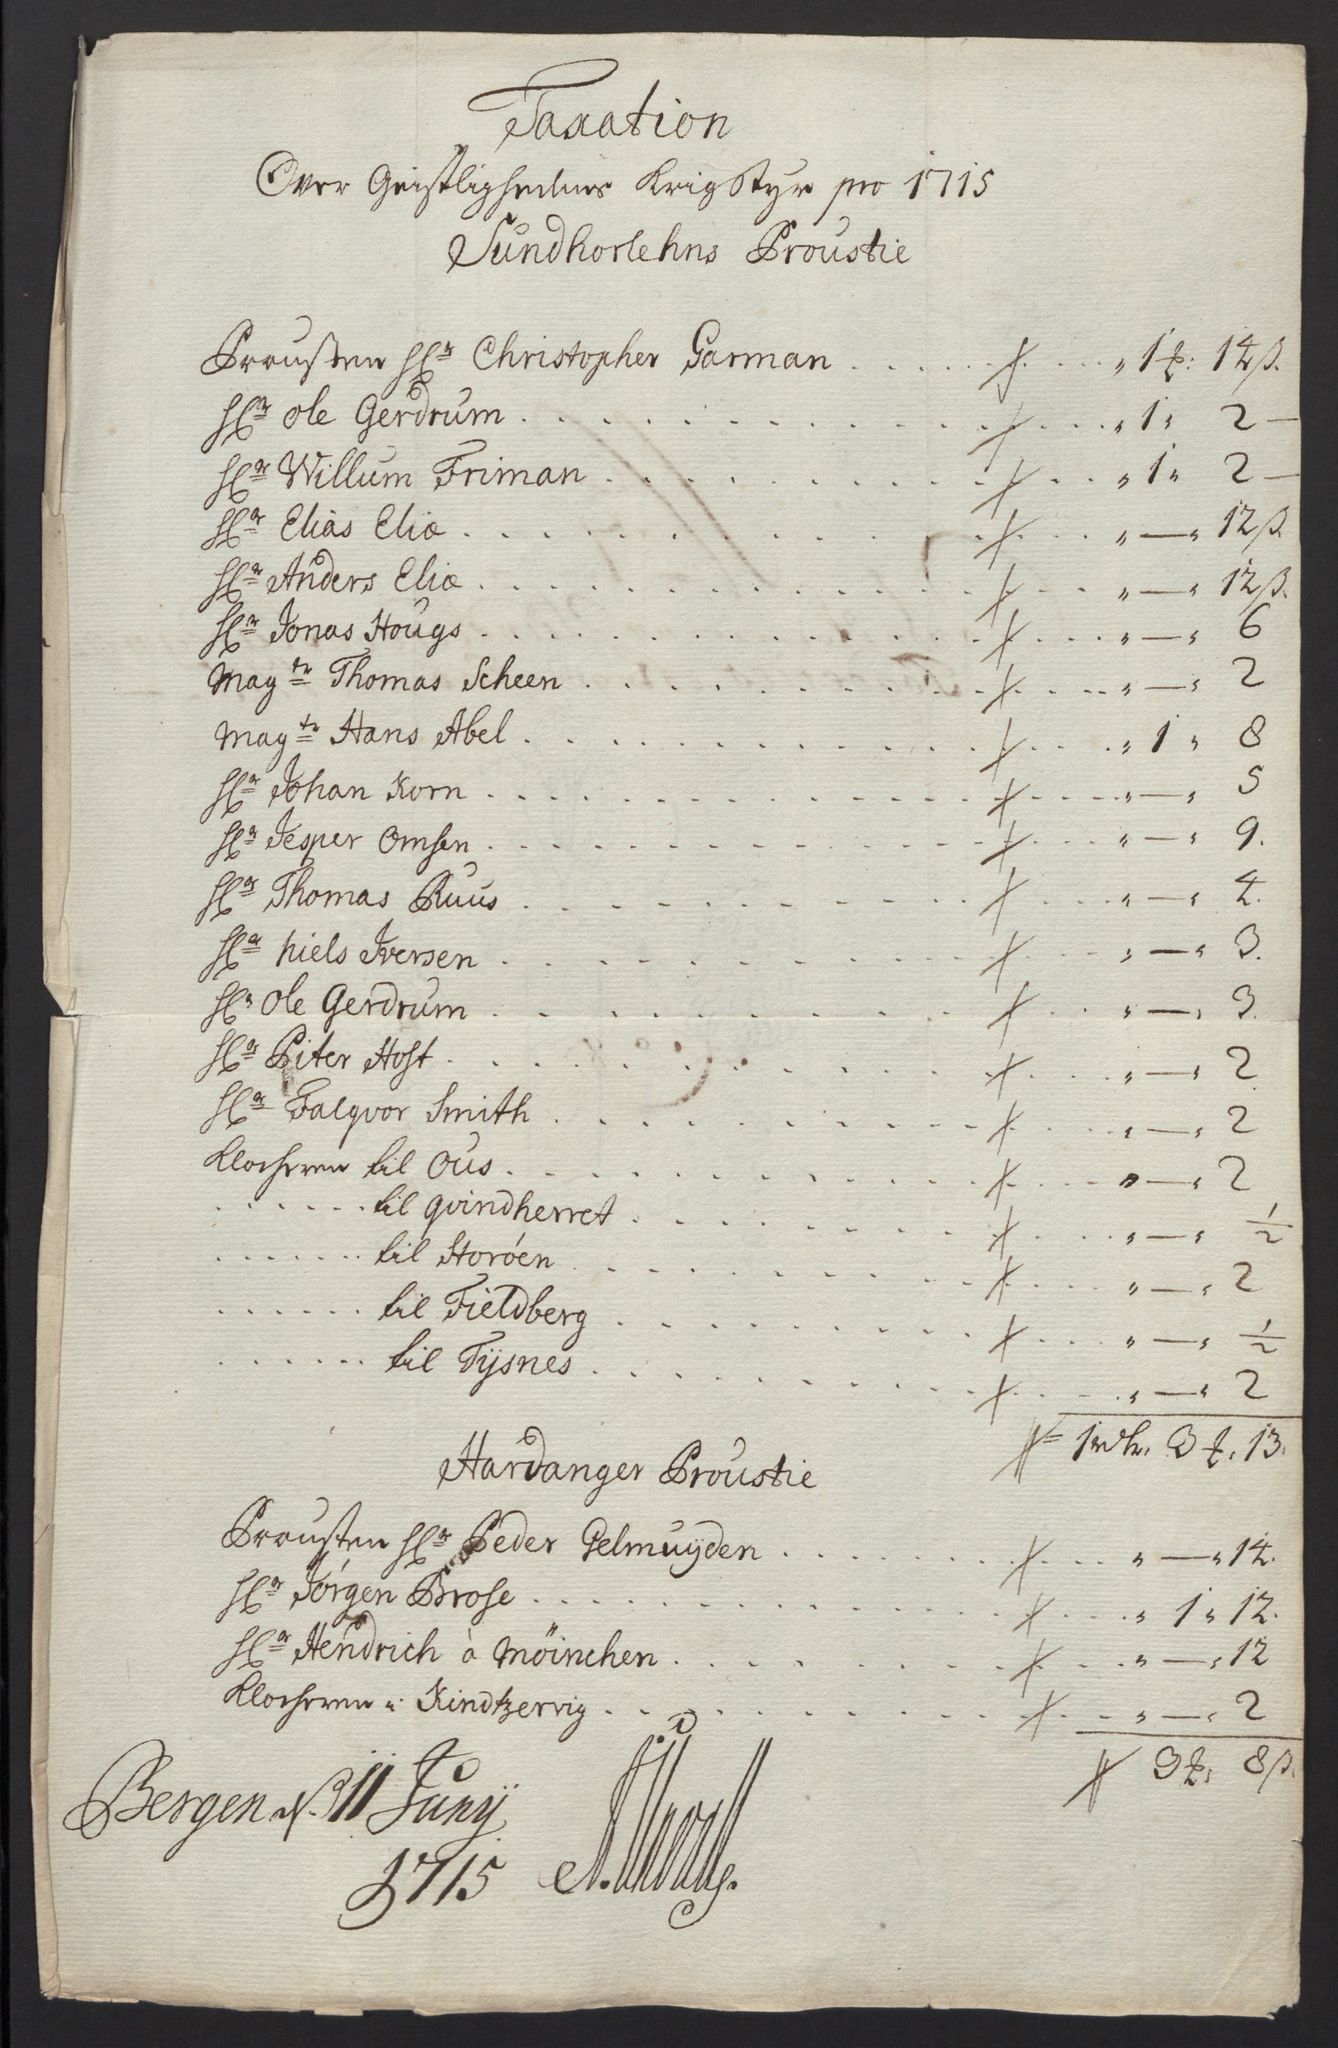 Taxation
Over Geistlighedens Krigstyr pro 1715
Sundhorlehns Proustie
Prousten Hr Christopher Garman . . . . . . . . . „ 1 ƶ: 14 ß.
Hr Ole Gerdrum . . . . . . . . . „ 1 „ 2 —
Hr Willum Friman . . . . . . . . . „ 1 „ 2 —
Hr Elias Eliæ . . . . . . . . . „ — „ 12 ß.
Hr Anders Eliæ . . . . . . . . . „ — „ 12 ß.
Hr Jonas Hougs . . . . . . . . . „ — „ 6
Magtr Thomas Scheen . . . . . . . . . „ — „ 2
Magtr Hans Abel . . . . . . . . . „ 1 „ 8
Hr Johan Korn . . . . . . . . . „ — „ 5
Hr Jesper Omsen . . . . . . . . . „ — „ 9.
Hr Thomas Ruus . . . . . . . . . „ — „ 4.
Hr Niels Iversen . . . . . . . . . „ — „ 3.
Hr Ole Gerdrum . . . . . . . . . „ — „ 3.
Hr Piter Host . . . . . . . . . „ — „ 2
Hr Falqvor Smith . . . . . . . . . „ — „ 2
Klocheren til Ous . . . . . . . . . „ — „ 2
. . . . . . til Qvindherret . . . . . . . . . „ — „ 1/2
. . . . . . til Storöen . . . . . . . . . „ — „ 2
. . . . . . til Fieldberg . . . . . . . . . „ — „ 1/2
. . . . . . til Tÿsnes . . . . . . . . . „ — „ 2
1 rdlr. 3 ƶ. 13.
Hardanger Proustie
Prousten Hr Peder Gelmuÿden . . . . . . . . . „ — „ 14.
Hr Jörgen Brose . . . . . . . . . „ 1 „ 12.
Hr Hendrich á Möinchen . . . . . . . . . „ — „ 12
Klocheren i Kindtzervig . . . . . . . . . „ — „ 2
3 ƶ. 8 ß.
Bergen d. 11 Junÿ
1715